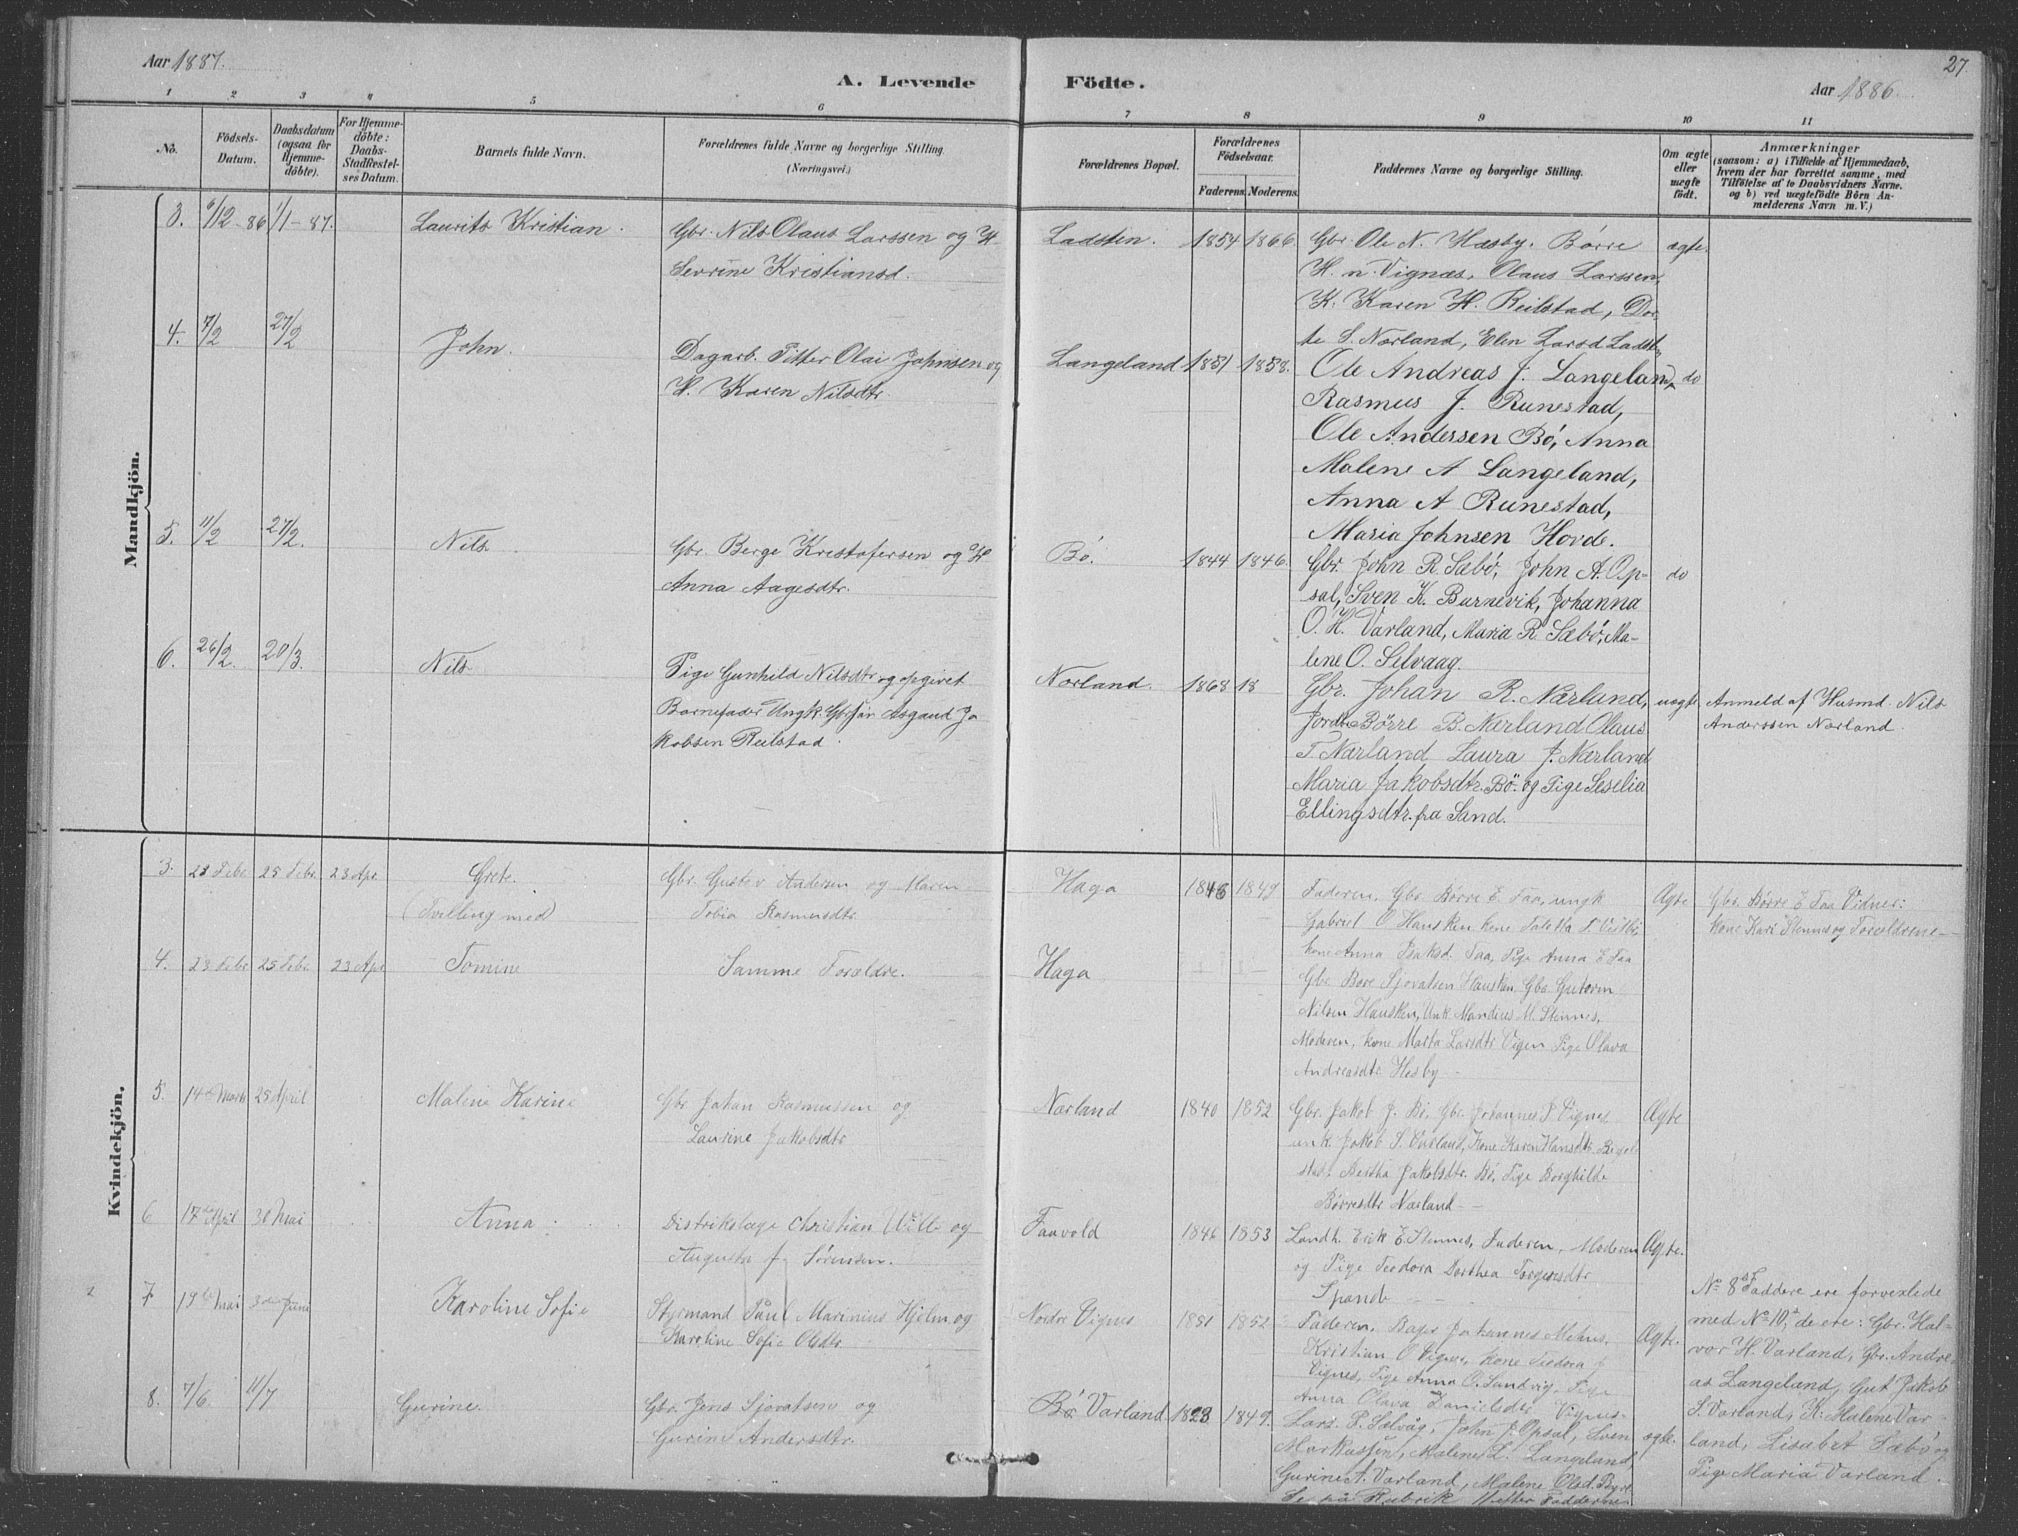 Aar 1887.
A. Levende Födte.
Aar 1886.
27.
1 2 3 4 5 6 7 8 9 10 11
No.
Födsels-
Datum.
Daabsdatum
(ogsaa for
Hjemme-
döbte).
For Hjemme-
döbte:
Daabs-
Stadfæstel-
ses Datum.
Barnets fulde Navn.
Forældrenes fulde Navne og borgerlige Stilling.
(Næringsvei.)
Forældrenes Bopæl.
Forældrenes
Födselsaar.
Faderens. Moderens.
Faddernes Navne og borgerlige Stilling.
Om ægte
eller
uægte
födt.
Anmærkninger
(saasom: a) i Tilfælde af Hjemmedaab,
hvem der har forrettet samme, med
Tilföielse af to Daabsvidners Navne.
og b) ved uægtefödte Börn An-
melderens Navn m. V.)
Mandkjön.
3. 6/12-86 1/1-87. Laurits Kristian. Gbr. Nils Olaus Larssen og H
Sevrine Kristiansd.
Ladstein. 1854 1866. Gbr. Ole N. Hæsby. Børre ægte.
H. n. Vignæs, Olaus Larssen,
K. Karen H. Reilstad, Dor-
te S. Nørland, Elen Larsd Ladst.
4. 7/2 27/2 John. Dagarb. Petter Olai Johnsen og
H. Karen Nilsdtr.
Langeland 1851 1858. Ole Andreas J. Langeland, do
Rasmus J. Runestad,
Ole Andersen Bø, Anna
Malene A Langeland,
Anna A Runestad,
Maria Johnsen Hovde.
5. 11/2 27/2. Nils. Gbr. Berge Kristofersen og H
Anna Aagesdtr.
Bø. 1844 1846. Gbr. John R. Sæbø, John A. Op- do
sal, Sven K. Barnevik, Johanna
O. H. Varland, Maria R. Sæbø, Ma-
lene O. Selvaag.
6. 26/2. 20/3. Nils. Pige Gunhild Nilsdtr og opgivet
Barnefader Ungk. Gbrsøn Asgaud Ja
kobsen Reilstad.
Nørland. 1868 18 Gbr. Johan R. Nærland, uægte Anmeld af Husmd. Nils
Anderssen Nørland.
Børre B. Nærland Olaus
T. Nærland Laura J. Nærland
Maria Jakobsdtr. Bö. og Pige Seselia
Ellingsdtr. fra Sand.
Kvindekjön.
3. 23 Febr 25 Febr. 23 Apr. Grete. Gbr. Gustav Andersen og Maren
(Tvilling med) Tobia Rasmusdtr
Haga 1846 1849 Faderen, Gbr Børre E. Faa, ungk Ægte Gbr. Børre E Faa Vidner:
Gabriel O Hausken kone Taletta kone Kari Stennes og Forældrene
kone Anna Isaksd. Faa, Pige Anna E Faa
4. 23 Febr 25 Febr. 23 Apr Tomine Samme Forældre. Haga
Gbr Børe Sjovatsen Hausken Gbr Gutorm
Nilsen Hausken, Unk Mandius M. Stennes,
Moderen, kone Marta Larsdtr Vigen Pige Olava
Andreasdtr Hesby
5. 14de Marts 25 April Malene Karine Gbr Johan Rasmussen og
Laurine Jakobsdtr
Nørland 1840 1852 Gbr. Jakob J. Bø, Gbr Johannes P Vignes Ægte
unk Jakob S. Varland, Kone Karen Hansdtr Reil-
stad, Bertha Jakobsdtr. Bø, Pige Borghilde
Børresdtr Nørland
6 17de April 30 Mai Anna. Distriktslæge Christian Wille og
Augusta J. Sørenssen.
Faavold 1846 1853 Landh. Erik E. Stennes, Faderen, Moderen Ægte.
og Pige Teodora Dorthea Torgersdtr
Spande
7 19de Mai 3die June Karoline Sofie Styrmand Paul Marinius Hjelm og
Karoline Sofie Olsdtr.
Nordre Vignes 1851 1852 Faderen, Bager Johannes Mehus, Ægte.
Kristian O Vignes, kone Teodora J
Vignes, Pige Anna O. Sandvig, Pige
Anna Olava Danielsdtr Vignes.
8. 7/6 11/7 Gurine. Gbr. Jens Sjovatsen og
Gurine Andersdtr.
Bø Varland 1823 1849. Lars P. Selvåg, John J. Opsal, Sven ægte.
Markussen, Malene L. Langeland
Gurine A. Varland, Malene Olsd. Byre
Se på Rubrik 11 efter Fadderne
No 8s Faddere ere forvexlede
med No 10, de ere: Gbr. Hal-
vor H. Varland, Gbr. Andre-
as Langeland, Gut Jakob
S. Varland, K. Malene Var-
land, Lisabet Sæbø og
Pige Maria Varland.